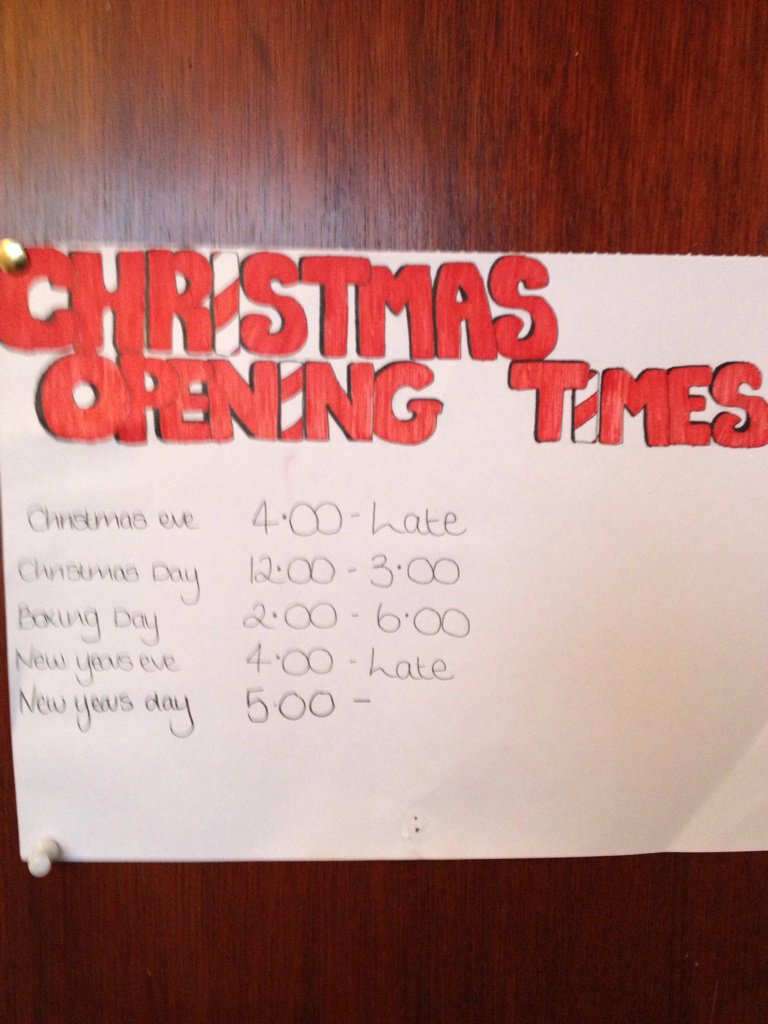 CHRISTMAS
OPENING TIMES
Christmas eve 4.00 - Late
Christmas Day 12.00 - 3.00
Boxing Day 2.00 - 6.00
New years eve 4.00 - Late
New years day 5.00 -